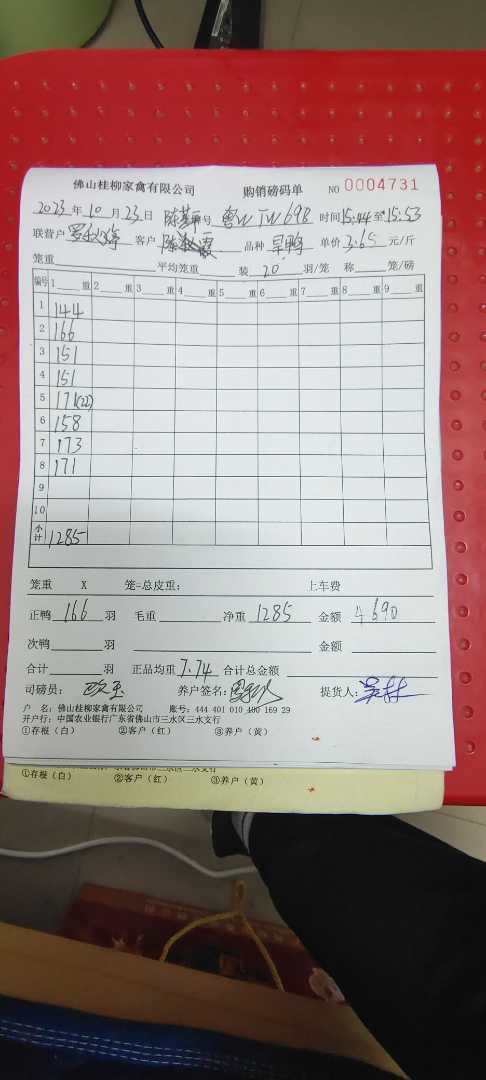 佛山桂柳家禽有限公司 购销磅码单 NO 0004731
2023年10月23日 号 粤W 698 时间15:44至15:53
联营户 客户 陈 品种 旱鸭 单价 3.65 元/斤
笼重 平均笼重 装 20 羽/笼 称 笼/磅
编号 1 重 2 重 3 重 4 重 5 重 6 重 7 重 8 重 9 重
1 144
2 166
3 151
4 151
5 171(22)
6 158
7 173
8 171
9
10
小计 1285
笼重 X 笼=总皮重: 上车费
正鸭 166 羽 毛重 净重 1285 金额 4690
次鸭 羽 金额
合计 羽 正品均重 7.74 合计总金额
司磅员: 养户签名: 提货人:
户 名: 佛山桂柳家禽有限公司 账号: 444 401 010 400 169 29
开户行: 中国农业银行广东省佛山市三水区三水支行
①存根(白) ②客户(红) ③养户(黄)
①存根(白) ②客户(红) ③养户(黄)